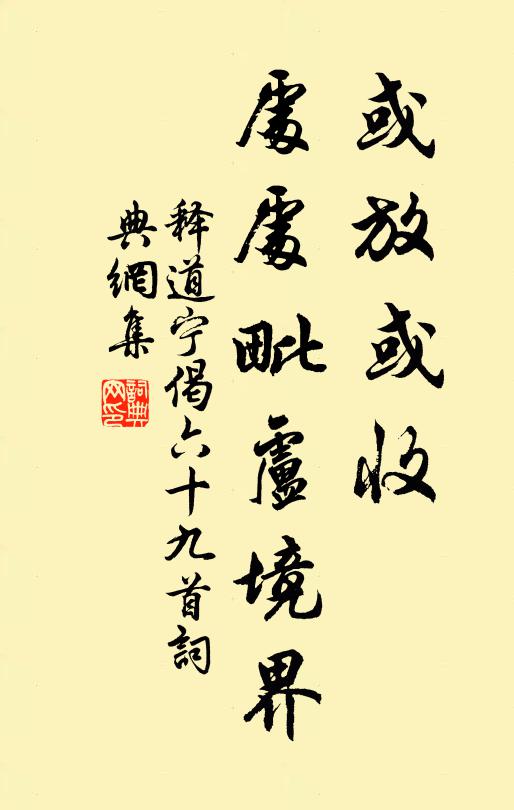 或放或收
處處毗盧境界
释道宁偈六十九首詞
典網集
詞典
网印